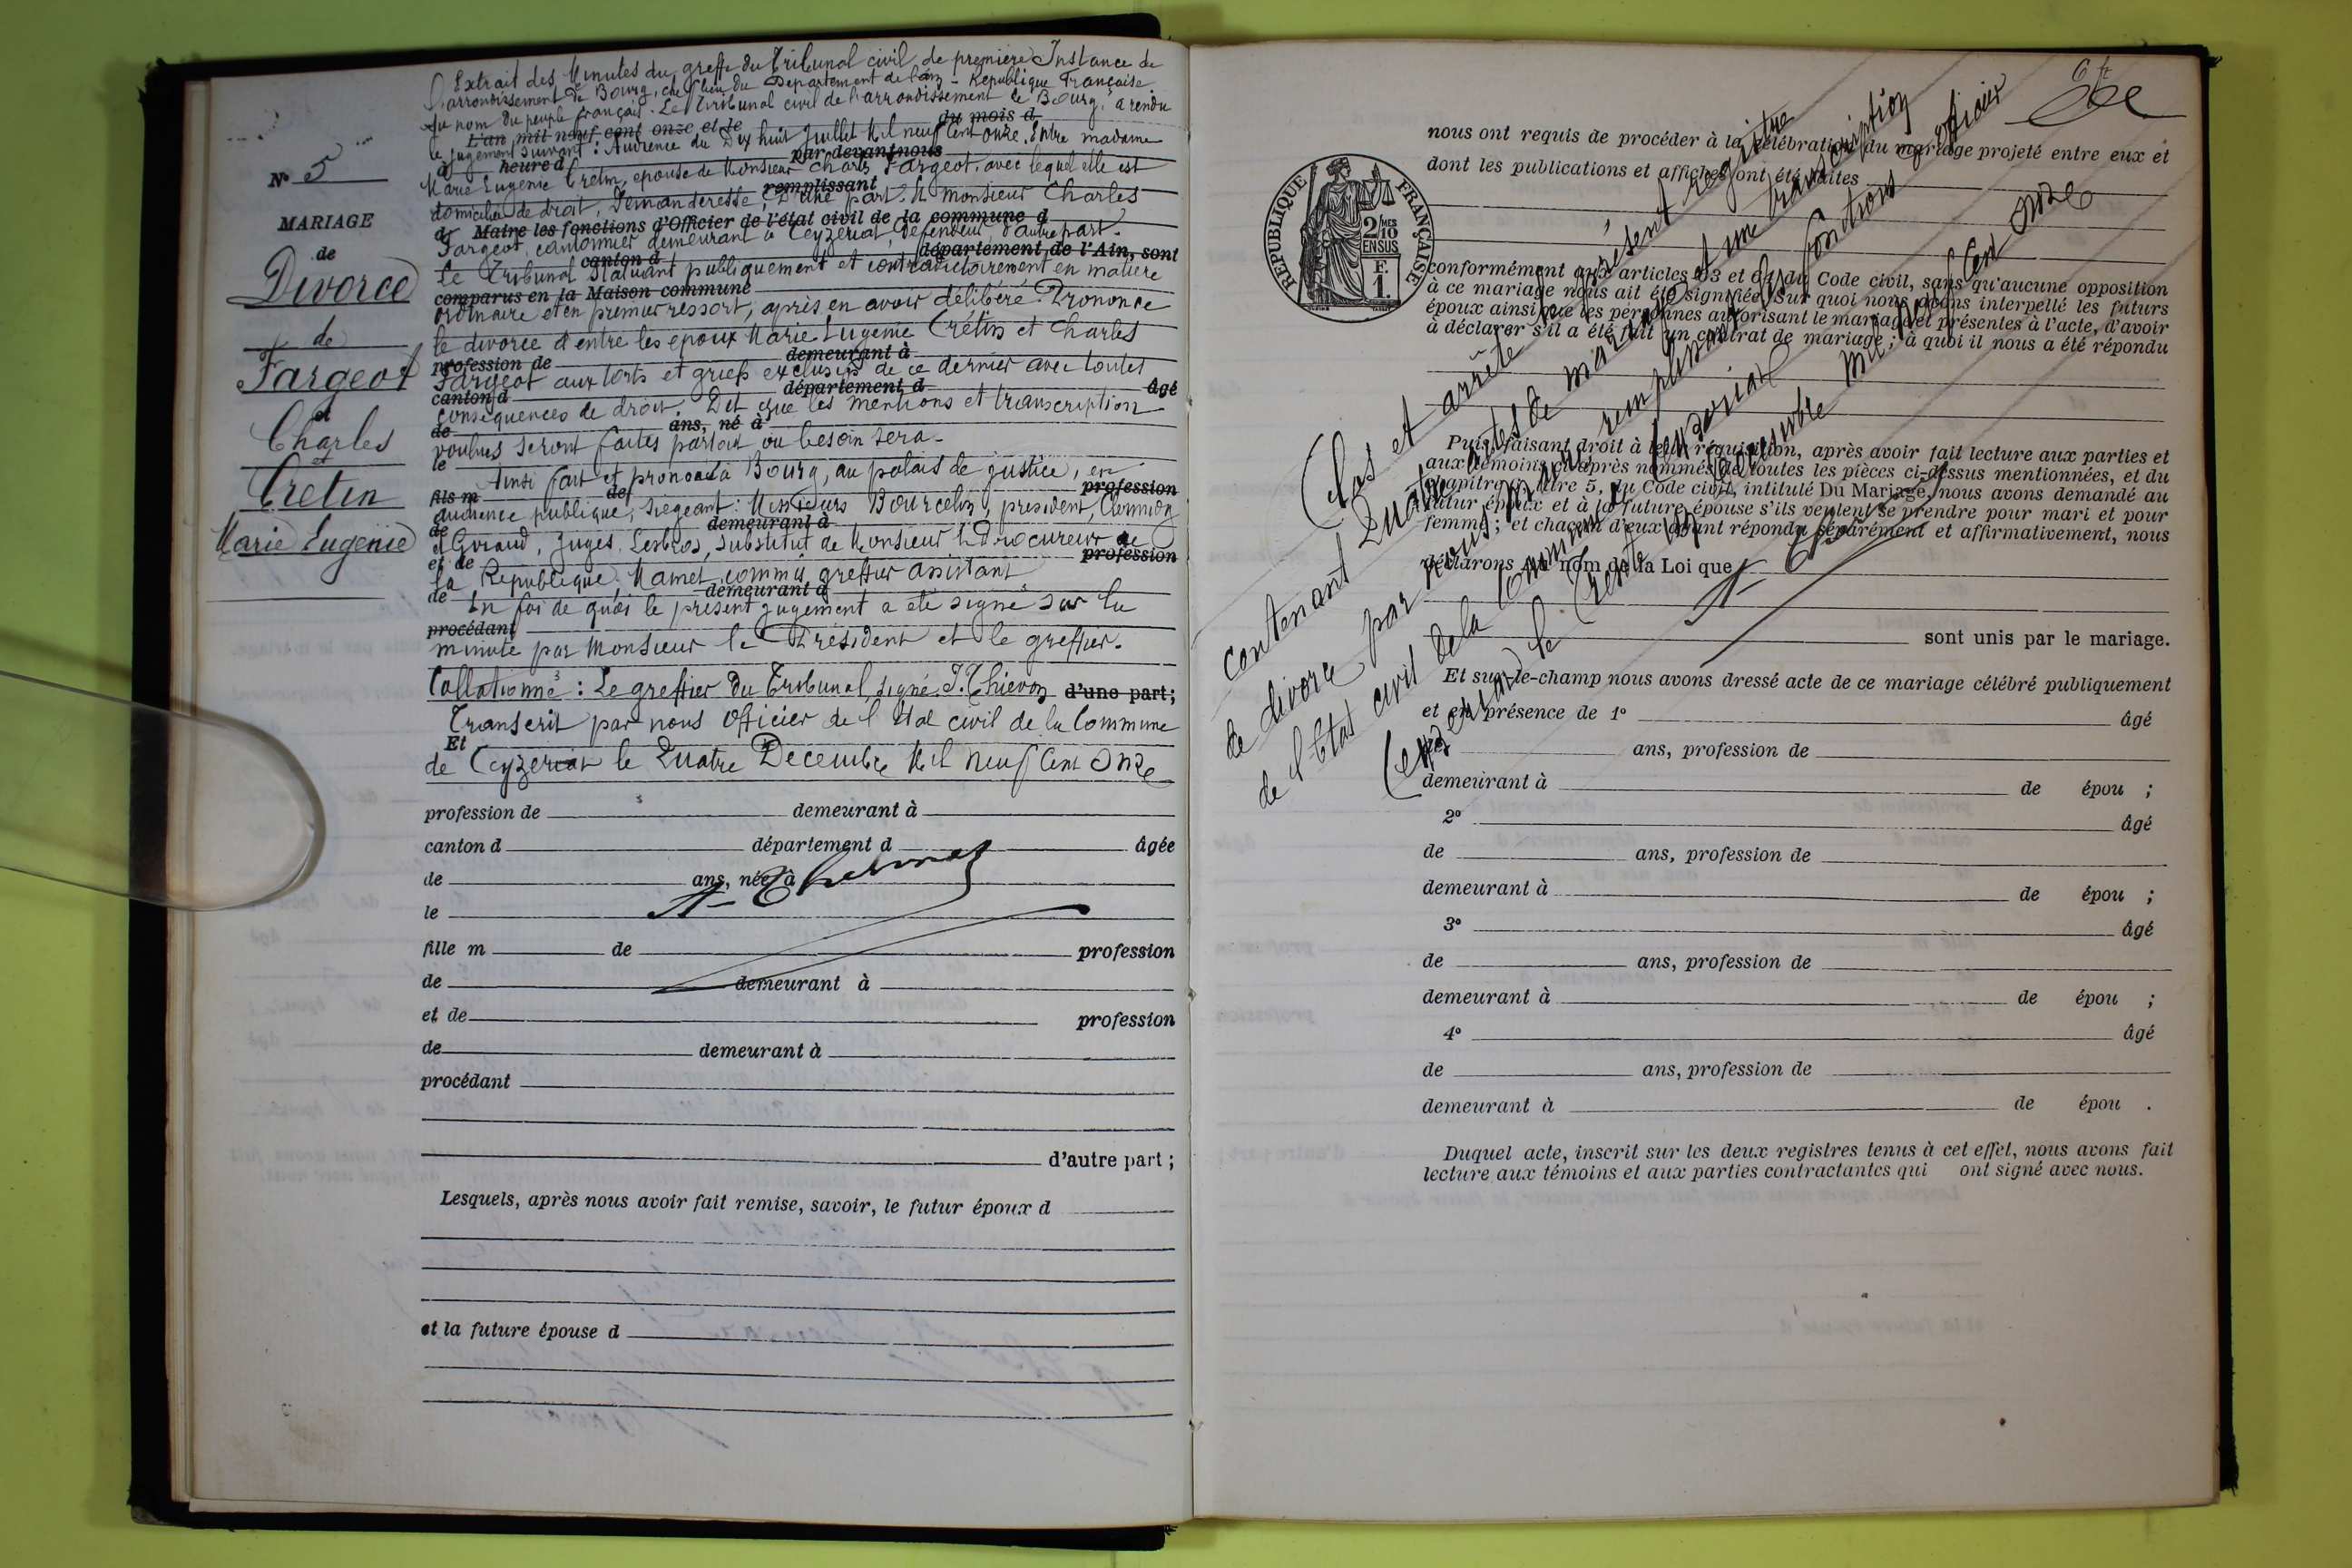 N° 5
MARIAGE
de
Divorce
de
Fargeot
et
Charles
et
Cretin
Marie Eugénie
Extrait des Minutes du greffe du Tribunal civil de première Instance de
l'arrondissement de Bourg, chef lieu du Département de l'ain - République Française.
Au nom du peuple français. Le Tribunal civil de l'arrondissement de Bourg, a rendu
L'an mil neuf cent onze et le du mois d
le jugement suivant : Audience du Dix huit Juillet Mil neuf Cent onze. Entre madame
à heure d par devant nous
Marie Eugénie Cretin, épouse de Monsieur Charles Fargeot, avec lequel elle est
remplissant
domiciliée de droit, Demanderesse, D'une part. Et monsieur Charles
d Maire les fonctions d'Officier de l'état civil de la commune d
Fargeot, cantonnier demeurant à Ceyzeriat, Défendeur, d'autre part.
canton d département de l'Ain, sont
Le Tribunal Statuant publiquement et contradictoirement en matière
comparus en la Maison commune
ordinaire et en premier ressort, après en avoir délibéré. Prononce
le divorce d'entre les epoux Marie Eugenie Crétin et Charles
profession de demeurant à
Fargeot aux torts et griefs exclusifs de ce dernier avec toutes
canton d département d âgé
conséquences de droit. Dit que les mentions et transcription
de ans, né à
voulues seront faites partout où besoin sera-
le
Ainsi fait et prononcé à Bourg, au palais de justice, en
fils m de profession
audience publique, siégeant: Messieurs Bourcelin, président,
de demeurant à
et Giraud, Juges, Lesbros, substitut de Monsieur le Procureur de
et de profession
la République, Mamet, commis greffier assistant
de demeurant à
En foi de quoi le présent jugement a été signé sur la
procédant
minute par Monsieur le Président et le greffier.
Collationné : Le greffier du Tribunal, signé J. Thievon d'une part;
Transcrit par nous Officier de l'Etat civil de la Commune
Et
de Ceyzeriat le Quatre Decembre Mil neuf Cent Onze
profession de demeurant à
canton d département d âgée
de ans, née à
le
fille m de profession
de demeurant à
et de profession
de demeurant à
procédant
d'autre part ;
Lesquels, après nous avoir fait remise, savoir, le futur époux d
et la future épouse d
6
nous ont requis de procéder à la célébration du mariage projeté entre eux et
dont les publications et affiches ont été faites
RÉPUBLIQUE FRANÇAISE
2/10 MES
EN SUS
F.
1.
conformément aux articles 63 et 64 du Code civil, sans qu'aucune opposition
à ce mariage nous ait été signifiée. Sur quoi nous avons interpellé les futurs
époux ainsi que les personnes autorisant le mariage et présentes à l'acte, d'avoir
à déclarer s'il a été fait un contrat de mariage ; à quoi il nous a été répondu
Puis, faisant droit à leur réquisition, après avoir fait lecture aux parties et
aux témoins ci-après nommés de toutes les pièces ci-dessus mentionnées, et du
chapitre 6, titre 5, du Code civil, intitulé Du Mariage, nous avons demandé au
futur époux et à la future épouse s'ils veulent se prendre pour mari et pour
femme ; et chacun d'eux ayant répondu séparément et affirmativement, nous
déclarons au nom de la Loi que
sont unis par le mariage.
Et sur-le-champ nous avons dressé acte de ce mariage célébré publiquement
et en présence de 1° âgé
de ans, profession de
demeurant à de épou ;
2° âgé
de ans, profession de
demeurant à de épou ;
3° âgé
de ans, profession de
demeurant à de épou ;
4° âgé
de ans, profession de
demeurant à de épou .
Duquel acte, inscrit sur les deux registres tenus à cet effet, nous avons fait
lecture aux témoins et aux parties contractantes qui ont signé avec nous.
Clos et arrêté le présent registre
contenant Quatre actes de mariage et une transcription
de divorce par nous, Maire, remplissant les fonctions d'officier
de l'Etat civil de la Commune de Ceyzeriat
Ceyzeriat le Trente un Decembre Mil neuf Cent Onze